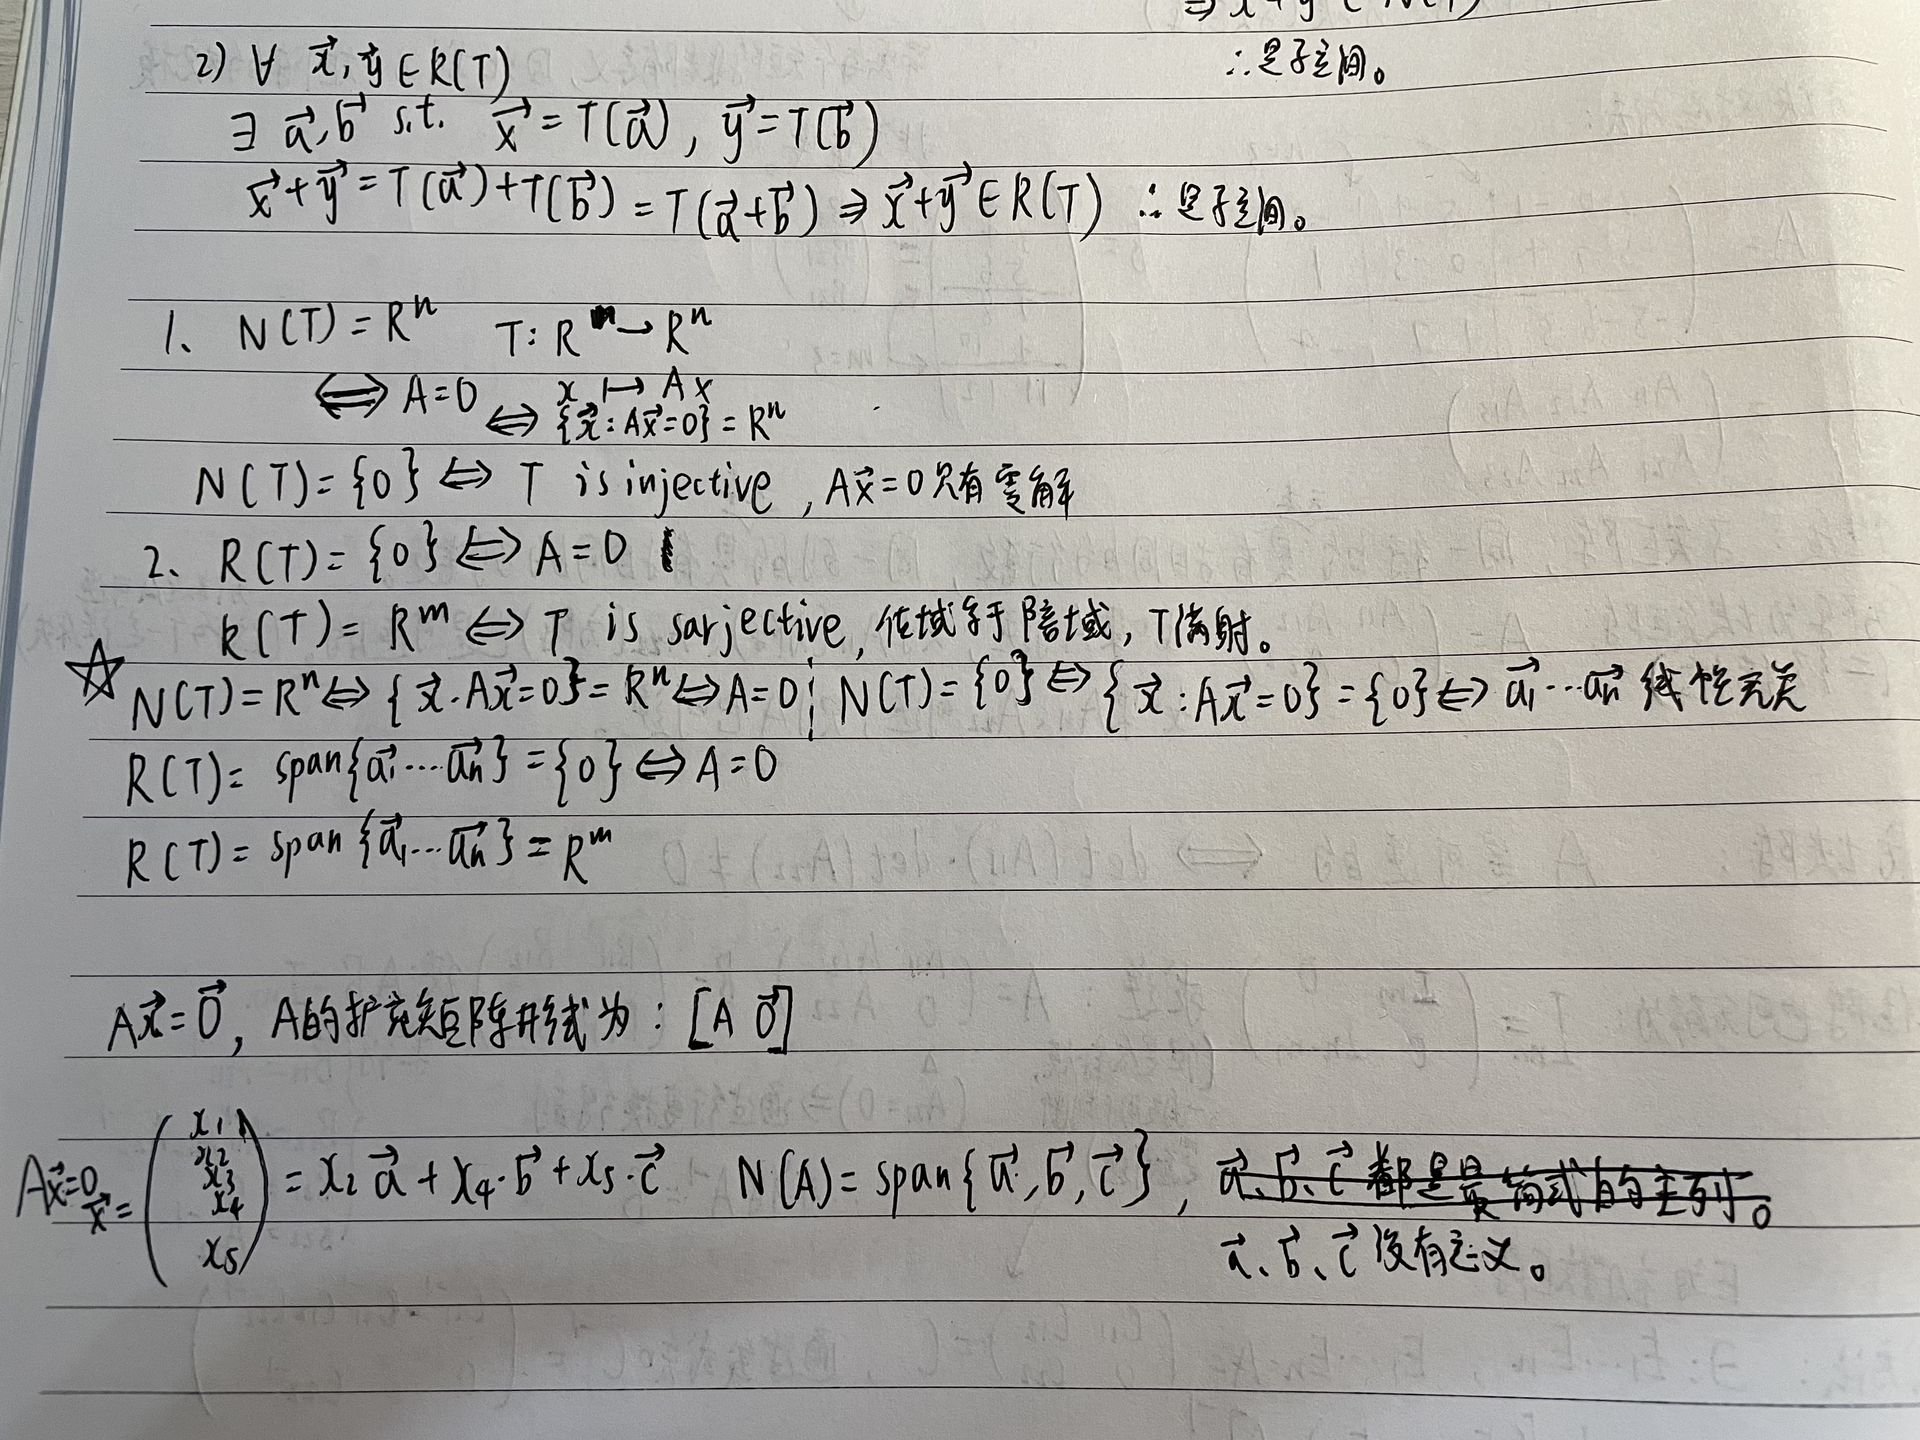 ⇒ x+y ∈ N(T)
2) ∀ x⃗, y⃗ ∈ R(T)
∴是子空间。
∃ a⃗, b⃗ s.t. x⃗ = T(a⃗), y⃗ = T(b⃗)
x⃗+y⃗ = T(a⃗)+T(b⃗) = T(a⃗+b⃗) ⇒ x⃗+y⃗ ∈ R(T) ∴是子空间。
1、 N(T) = Rⁿ T: R → Rⁿ
⇔ A=0 x ↦ Ax
⇔ {x⃗: Ax⃗=0} = Rⁿ
N(T) = {0} ⇔ T is injective, Ax⃗=0只有零解
2、 R(T) = {0} ⇔ A=0
R(T) = Rᵐ ⇔ T is sarjective, 值域等于陪域, T满射。
☆ N(T) = Rⁿ ⇔ {x⃗. Ax⃗=0} = Rⁿ ⇔ A=0 ; N(T) = {0} ⇔ {x⃗: Ax⃗=0} = {0} ⇔ a⃗₁…a⃗ₙ 线性无关
R(T) = span{a⃗₁…a⃗ₙ} = {0} ⇔ A=0
R(T) = span{a⃗₁…a⃗ₙ} = Rᵐ
Ax⃗=0⃗, A的扩充矩阵形式为: [A 0⃗]
Ax⃗=0 x⃗ = (x₁ x₂ x₃ x₄ x₅) = x₂a⃗ + x₄·b⃗ + x₅·c⃗ N(A) = span{a⃗, b⃗, c⃗}, a⃗、b⃗、c⃗ 都是最简式的主列。
a⃗、b⃗、c⃗ 没有意义。